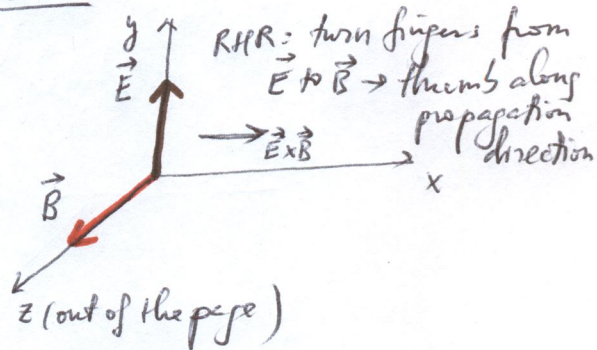 y
RHR: turn fingers from
E⃗ to B⃗ → thumb along
propagation
direction
E⃗
E⃗xB⃗
x
B⃗
z (out of the page)